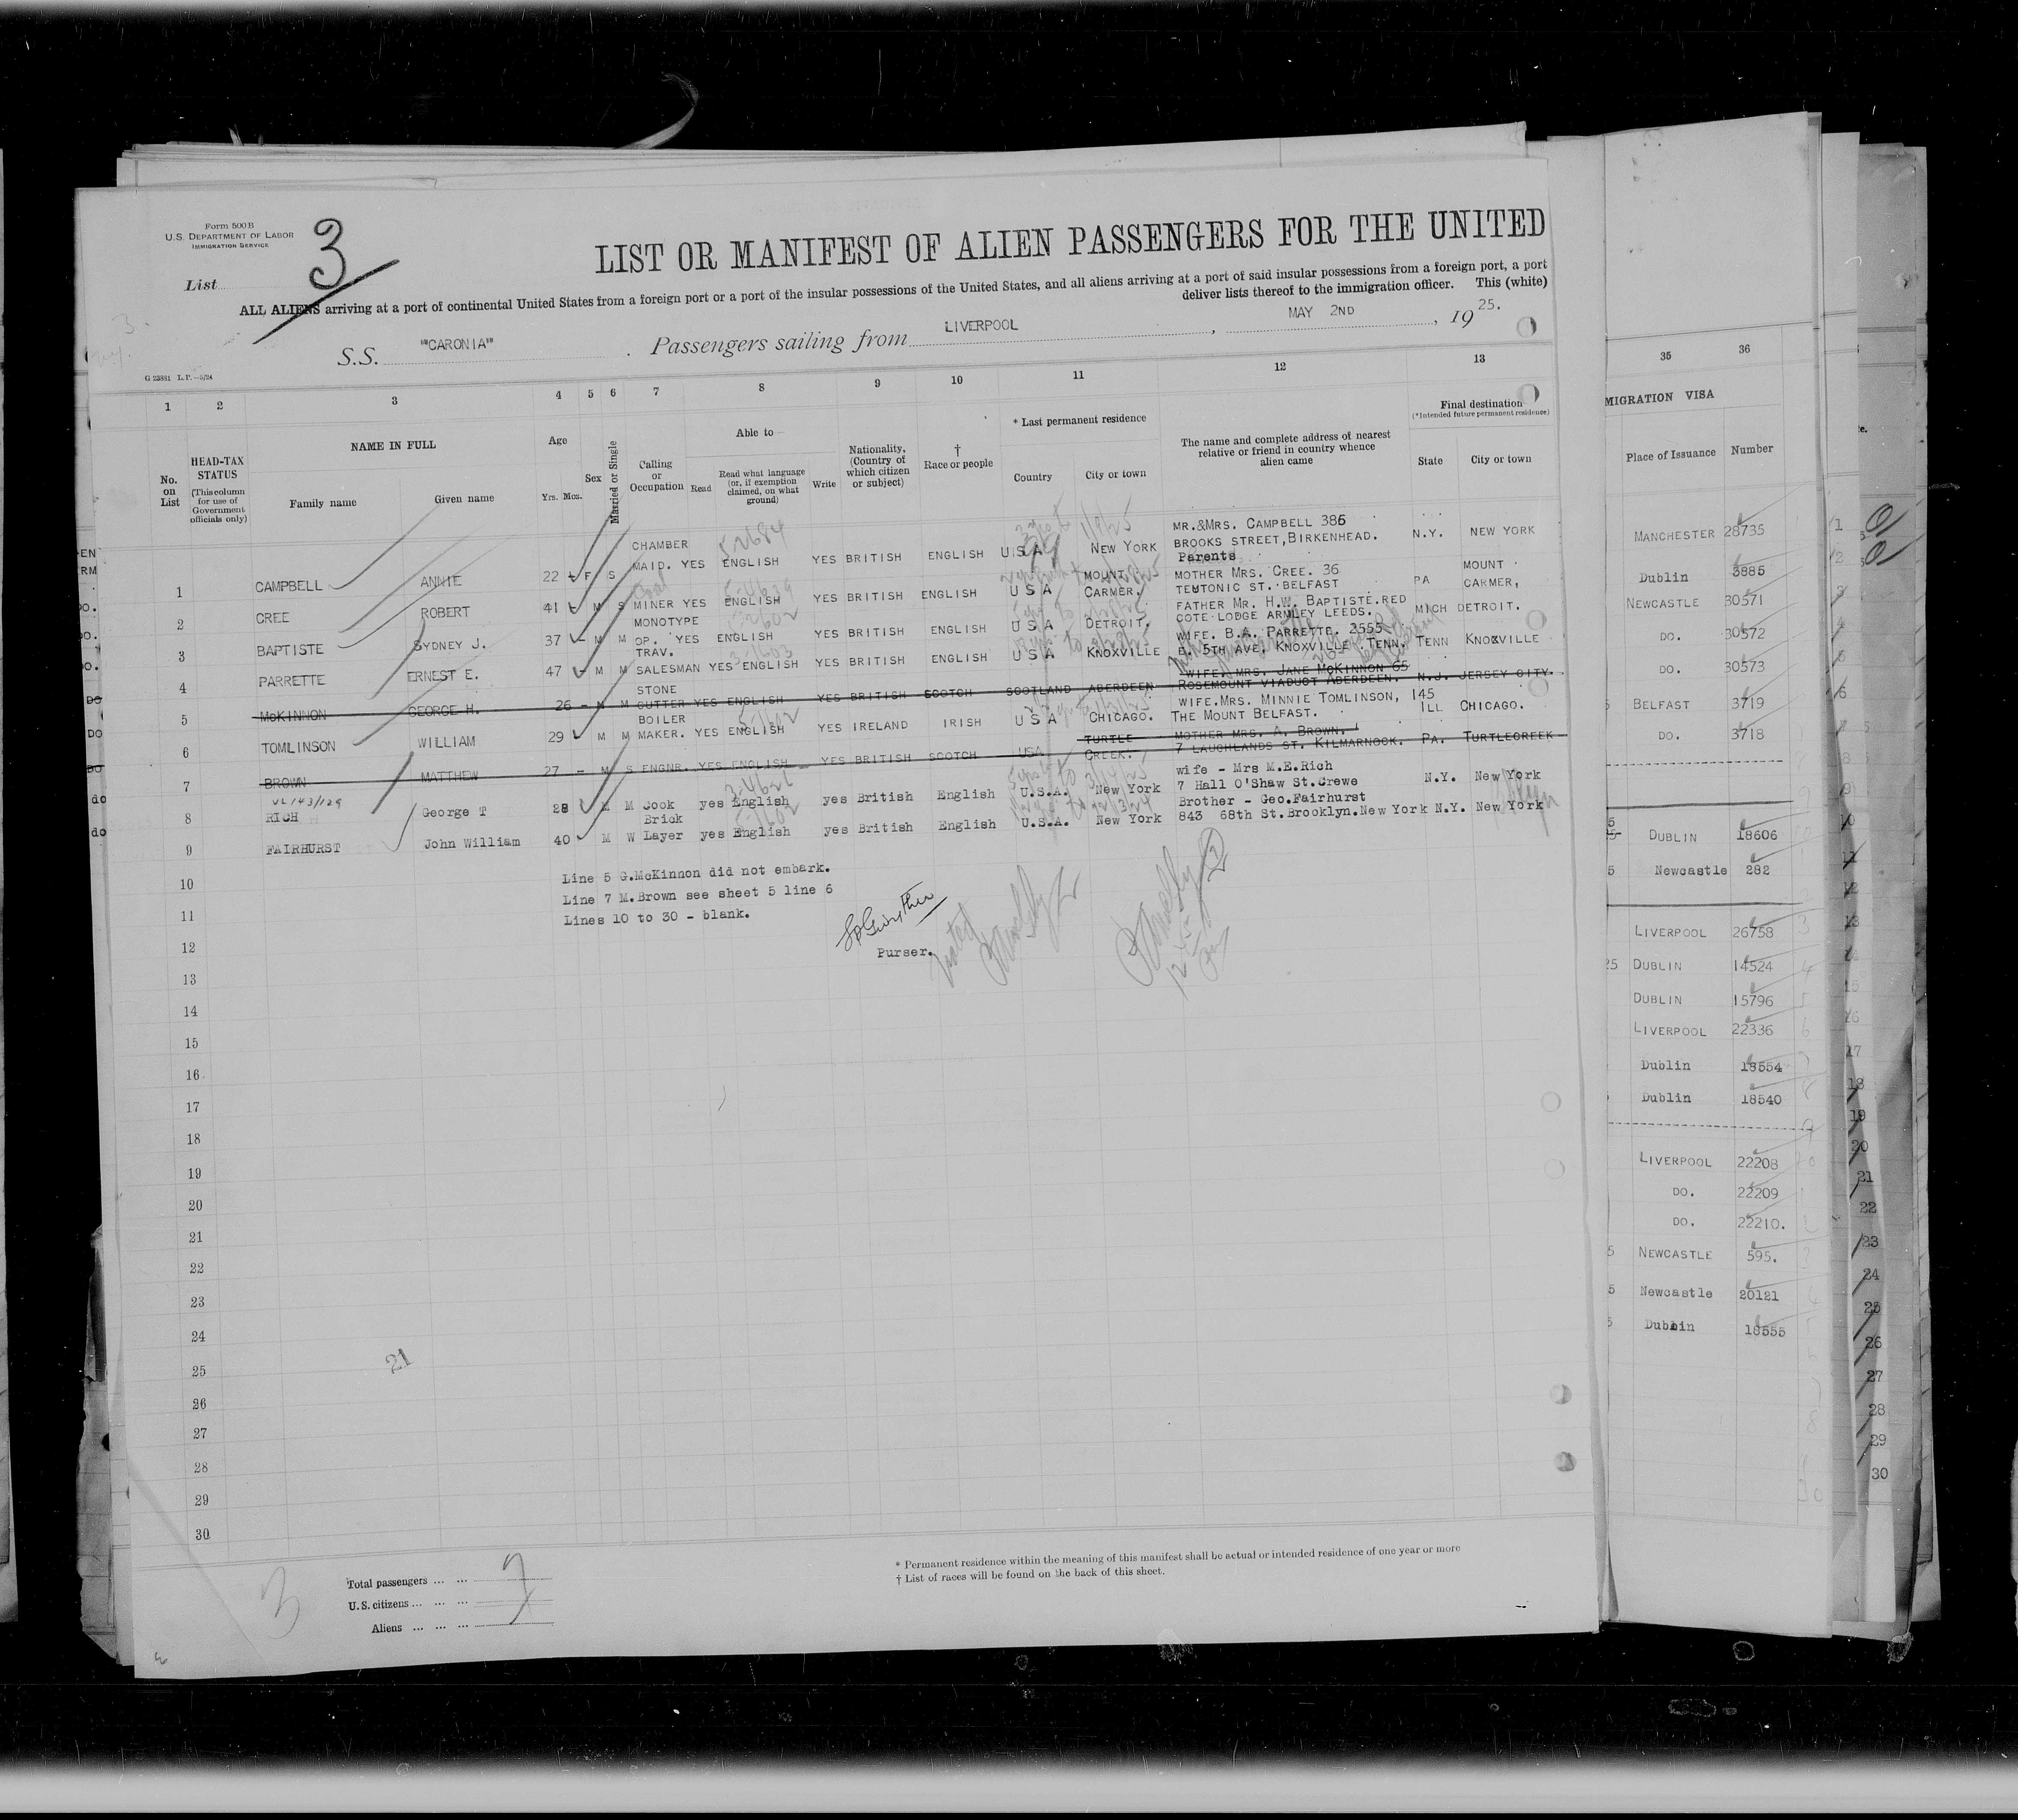 Form 500B
U.S. DEPARTMENT OF LABOR
IMMIGRATION SERVICE
List 3
LIST OR MANIFEST OF ALIEN PASSENGERS FOR THE UNITED
ALL ALIENS arriving at a port of continental United States from a foreign port or a port of the insular possessions of the United States, and all aliens arriving at a port of said insular possessions from a foreign port, a port
deliver lists thereof to the immigration officer. This (white)
S.S. "CARONIA" . Passengers sailing from LIVERPOOL , MAY 2ND , 1925.
G 23881 L.P.—5/24
1 2 3 4 5 6 7 8 9 10 11 12 13
No. on List
HEAD-TAX STATUS
(This column for use of Government officials only)
NAME IN FULL
Family name Given name
Age
Yrs. Mos.
Sex
Married or Single
Calling or Occupation
Able to—
Read
Read what language (or, if exemption claimed, on what ground)
Write
Nationality, (Country of which citizen or subject)
† Race or people
* Last permanent residence
Country City or town
The name and complete address of nearest relative or friend in country whence alien came
Final destination
(*Intended future permanent residence)
State City or town
1 CAMPBELL ANNIE 22 F S CHAMBER MAID. YES ENGLISH YES BRITISH ENGLISH USA NEW YORK MR.&MRS. CAMPBELL 386 BROOKS STREET,BIRKENHEAD. Parents N.Y. NEW YORK
2 CREE ROBERT 41 M S Coal MINER YES ENGLISH YES BRITISH ENGLISH USA MOUNT CARMER. MOTHER MRS. CREE. 36 TEUTONIC ST. BELFAST PA MOUNT CARMER,
3 BAPTISTE SYDNEY J. 37 - M M MONOTYPE OP. YES ENGLISH YES BRITISH ENGLISH USA DETROIT. FATHER MR. H.W. BAPTISTE.RED COTE LODGE ARMLEY LEEDS. MICH DETROIT.
4 PARRETTE ERNEST E. 47 - M M TRAV. SALESMAN YES ENGLISH YES BRITISH ENGLISH USA KNOXVILLE WIFE. B.A. PARRETTE. 2555 E. 5TH AVE. KNOXVILLE TENN. TENN KNOXVILLE
5 McKINNON GEORGE H. 26 - M M STONE CUTTER YES ENGLISH YES BRITISH SCOTCH SCOTLAND ABERDEEN WIFE. MRS. JANE McKINNON 65 ROSEMOUNT VIADUCT ABERDEEN. N.J. JERSEY CITY.
6 TOMLINSON WILLIAM 29 M M BOILER MAKER. YES ENGLISH YES IRELAND IRISH USA CHICAGO. WIFE.MRS. MINNIE TOMLINSON, 145 THE MOUNT BELFAST. ILL CHICAGO.
7 BROWN MATTHEW 27 - M S ENGNR. YES ENGLISH - YES BRITISH SCOTCH USA TURTLE CREEK. MOTHER MRS. A. BROWN. 7 LAUCHLANDS ST. KILMARNOCK. PA. TURTLECREEK
VL 143/129
8 RICH George T 28 M M Cook yes English yes British English U.S.A. New York wife - Mrs M.E.Rich 7 Hall O'Shaw St.Crewe N.Y. New York
9 FAIRHURST John William 40 M W Brick Layer yes English yes British English U.S.A. New York Brother - Geo.Fairhurst 843 68th St.Brooklyn.New York N.Y. New York
10 Line 5 G.McKinnon did not embark.
11 Line 7 M.Brown see sheet 5 line 6
Lines 10 to 30 - blank.
12
Purser.
13
14
15
16
17
18
19
20
21
22
23
24
25
21
26
27
28
29
30
Total passengers ... ... 7
U.S. citizens ... ... ...
Aliens ... ... ...
3
* Permanent residence within the meaning of this manifest shall be actual or intended residence of one year or more
† List of races will be found on the back of this sheet.
35 36
MIGRATION VISA
Place of Issuance Number
MANCHESTER 28735
Dublin 3885
NEWCASTLE 30571
DO. 30572
DO. 30573
BELFAST 3719
DO. 3718
DUBLIN 18606
Newcastle 282
LIVERPOOL 26758
DUBLIN 14524
DUBLIN 15796
LIVERPOOL 22336
Dublin 18554
Dublin 18540
LIVERPOOL 22208
DO. 22209
DO. 22210.
NEWCASTLE 595.
Newcastle 20121
Dublin 18555